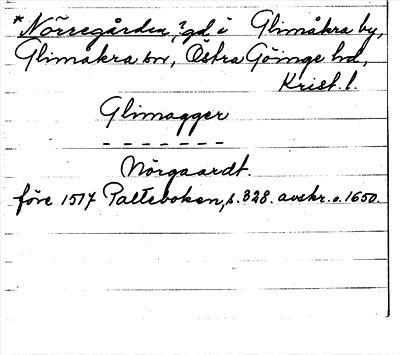 * Nörregården, ? gd i Glimåkra by,
Glimåkra sn, Östra Göinge hd,
Krist. l.
Glimagger
- - - - - - -
Nörgaardt.
före 1517 Palteboken, s. 328. avskr. o. 1650.